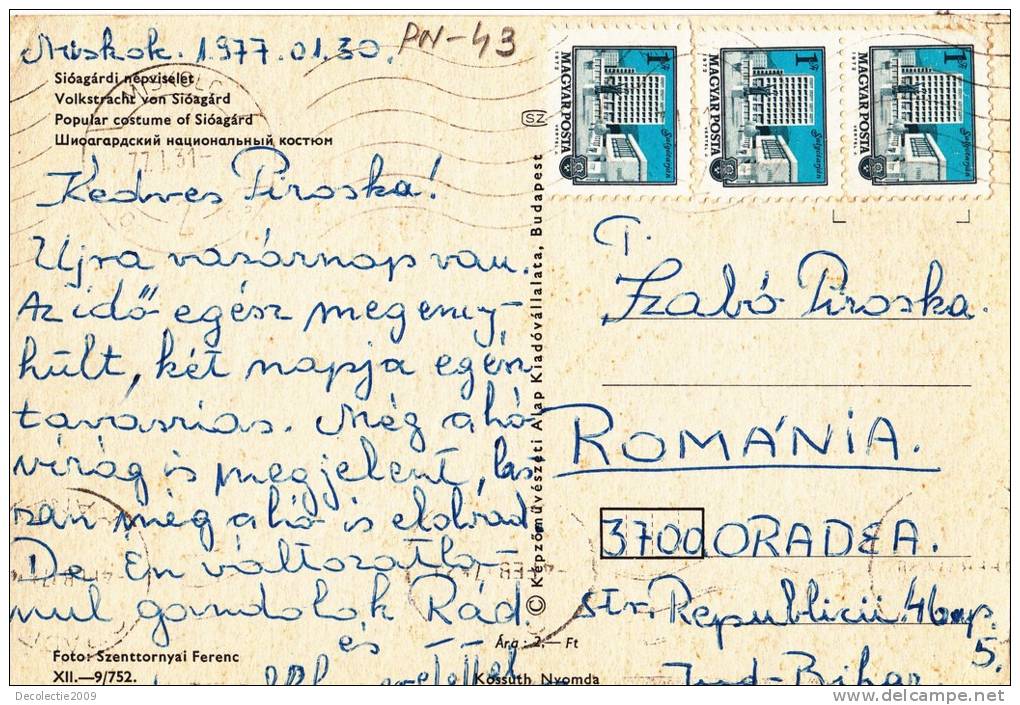 Miskolc. 1977.01.30.
PN-43
Sióagárdi népviselet
Volkstracht von Sióagárd
Popular costume of Sióagárd
Шиоагардский национальный костюм
Kedves Piroska!
Ujra vasárnap van.
Az idő egész megeny-
hült, két napja egész
tavaszias. Még a hó-
virág is megjelent, las-
san még a hó is elolvad.
De Én változatla-
nul gondolok Rád.
és
Foto: Szenttornyai Ferenc
XII.—9/752.
© Képzőművészeti Alap Kiadóvállalata, Budapest
SZ
Ára: 2,— Ft
Kossuth Nyomda
1 Ft
MAGYAR POSTA
1972
Salgótarján
1 Ft
MAGYAR POSTA
1972
Salgótarján
1 Ft
MAGYAR POSTA
1972
Salgótarján
T.
Szabó Piroska.
ROMÁNIA.
3700 ORADEA.
str. Republicii 46 ap.
5.
Jud-Bihar
Decolectie2009
delcampe.net